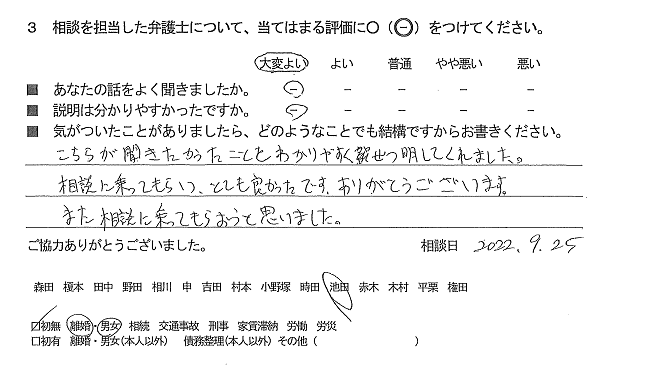 3 相談を担当した弁護士について、当てはまる評価に○(⊖)をつけてください。
大変よい よい 普通 やや悪い 悪い
■ あなたの話をよく聞きましたか。 − − − − −
■ 説明は分かりやすかったですか。 − − − − −
■ 気がついたことがありましたら、どのようなことでも結構ですからお書きください。
こちらが聞きたかったことをわかりやすく説明してくれました。
相談に乗ってもらい、とても良かったです。ありがとうございます。
また相談に乗ってもらおうと思いました。
ご協力ありがとうございました。 相談日 2022.9.25
森田 榎本 田中 野田 相川 申 吉田 村本 小野塚 時田 池田 赤木 木村 平栗 権田
□初無 離婚・男女 相続 交通事故 刑事 家賃滞納 労働 労災
□初有 離婚・男女(本人以外) 債務整理(本人以外) その他( )